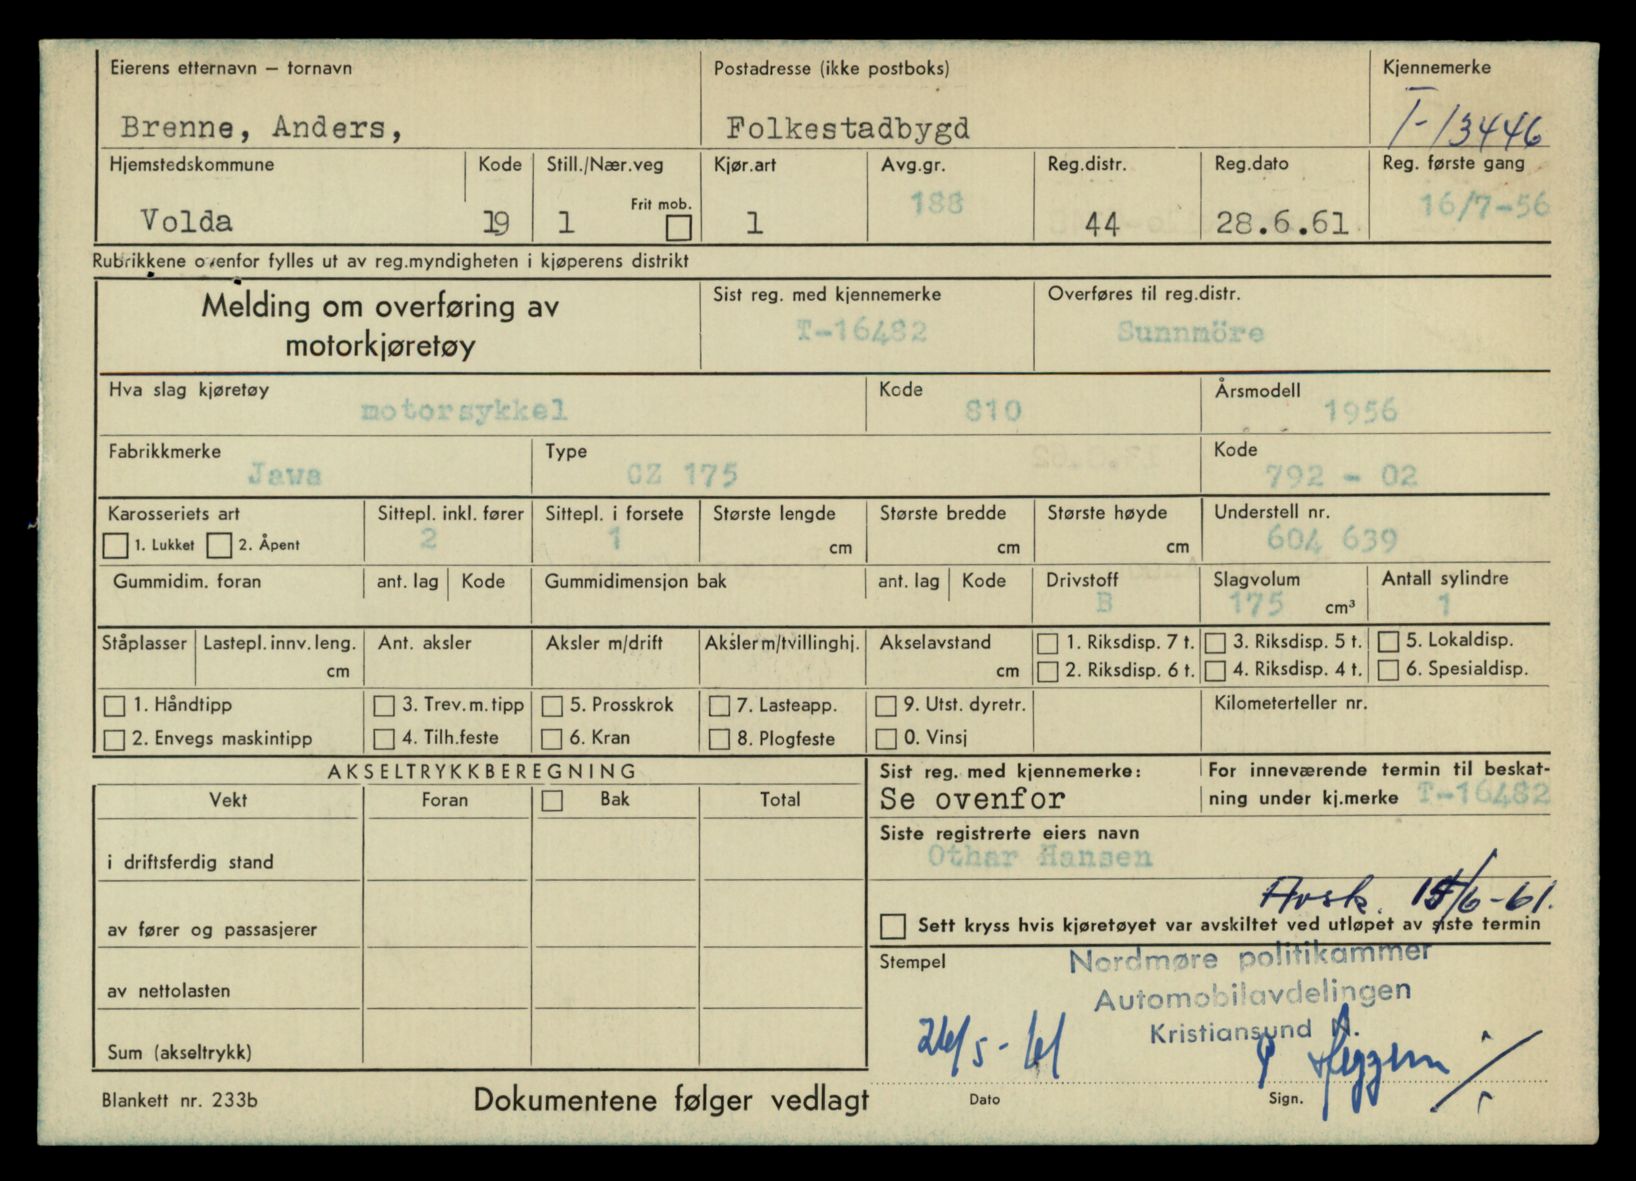 Eierens etternavn – fornavn Postadresse (ikke postboks) Kjennemerke
Brenne, Anders, Folkestadbygd T-13446
Hjemstedskommune Kode Still./Nær.veg Kjør.art Avg.gr. Reg.distr. Reg.dato Reg. første gang
Frit mob.
Volda 19 1 1 188 44 28.6.61 16/7-56
Rubrikkene ovenfor fylles ut av reg.myndigheten i kjøperens distrikt
Melding om overføring av
motorkjøretøy
Sist reg. med kjennemerke Overføres til reg.distr.
T-16482 Sunnmöre
Hva slag kjøretøy Kode Årsmodell
motorsykkel 810 1956
Fabrikkmerke Type Kode
Jawa CZ 175 792 - 02
Karosseriets art Sittepl. inkl. fører Sittepl. i forsete Største lengde Største bredde Største høyde Understell nr.
1. Lukket 2. Åpent 2 1 cm cm cm 604 639
Gummidim. foran ant. lag Kode Gummidimensjon bak ant. lag Kode Drivstoff Slagvolum Antall sylindre
B 175 cm³ 1
Ståplasser Lastepl. innv. leng. Ant. aksler Aksler m/drift Aksler m/tvillinghj. Akselavstand 1. Riksdisp. 7 t. 3. Riksdisp. 5 t. 5. Lokaldisp.
cm cm 2. Riksdisp. 6 t. 4. Riksdisp. 4 t. 6. Spesialdisp.
1. Håndtipp 3. Trev. m. tipp 5. Prosskrok 7. Lasteapp. 9. Utst. dyretr. Kilometerteller nr.
2. Envegs maskintipp 4. Tilh.feste 6. Kran 8. Plogfeste 0. Vinsj
AKSELTRYKKBEREGNING
Vekt Foran Bak Total
i driftsferdig stand
av fører og passasjerer
av nettolasten
Sum (akseltrykk)
Sist reg. med kjennemerke: For inneværende termin til beskat-
Se ovenfor ning under kj.merke T-16482
Siste registrerte eiers navn
Othar Hansen
Avsk. 15/6-61.
Sett kryss hvis kjøretøyet var avskiltet ved utløpet av siste termin
Stempel
Nordmøre politikammer
Automobilavdelingen
Kristiansund N.
26/5-61
Dato Sign.
Blankett nr. 233b Dokumentene følger vedlagt